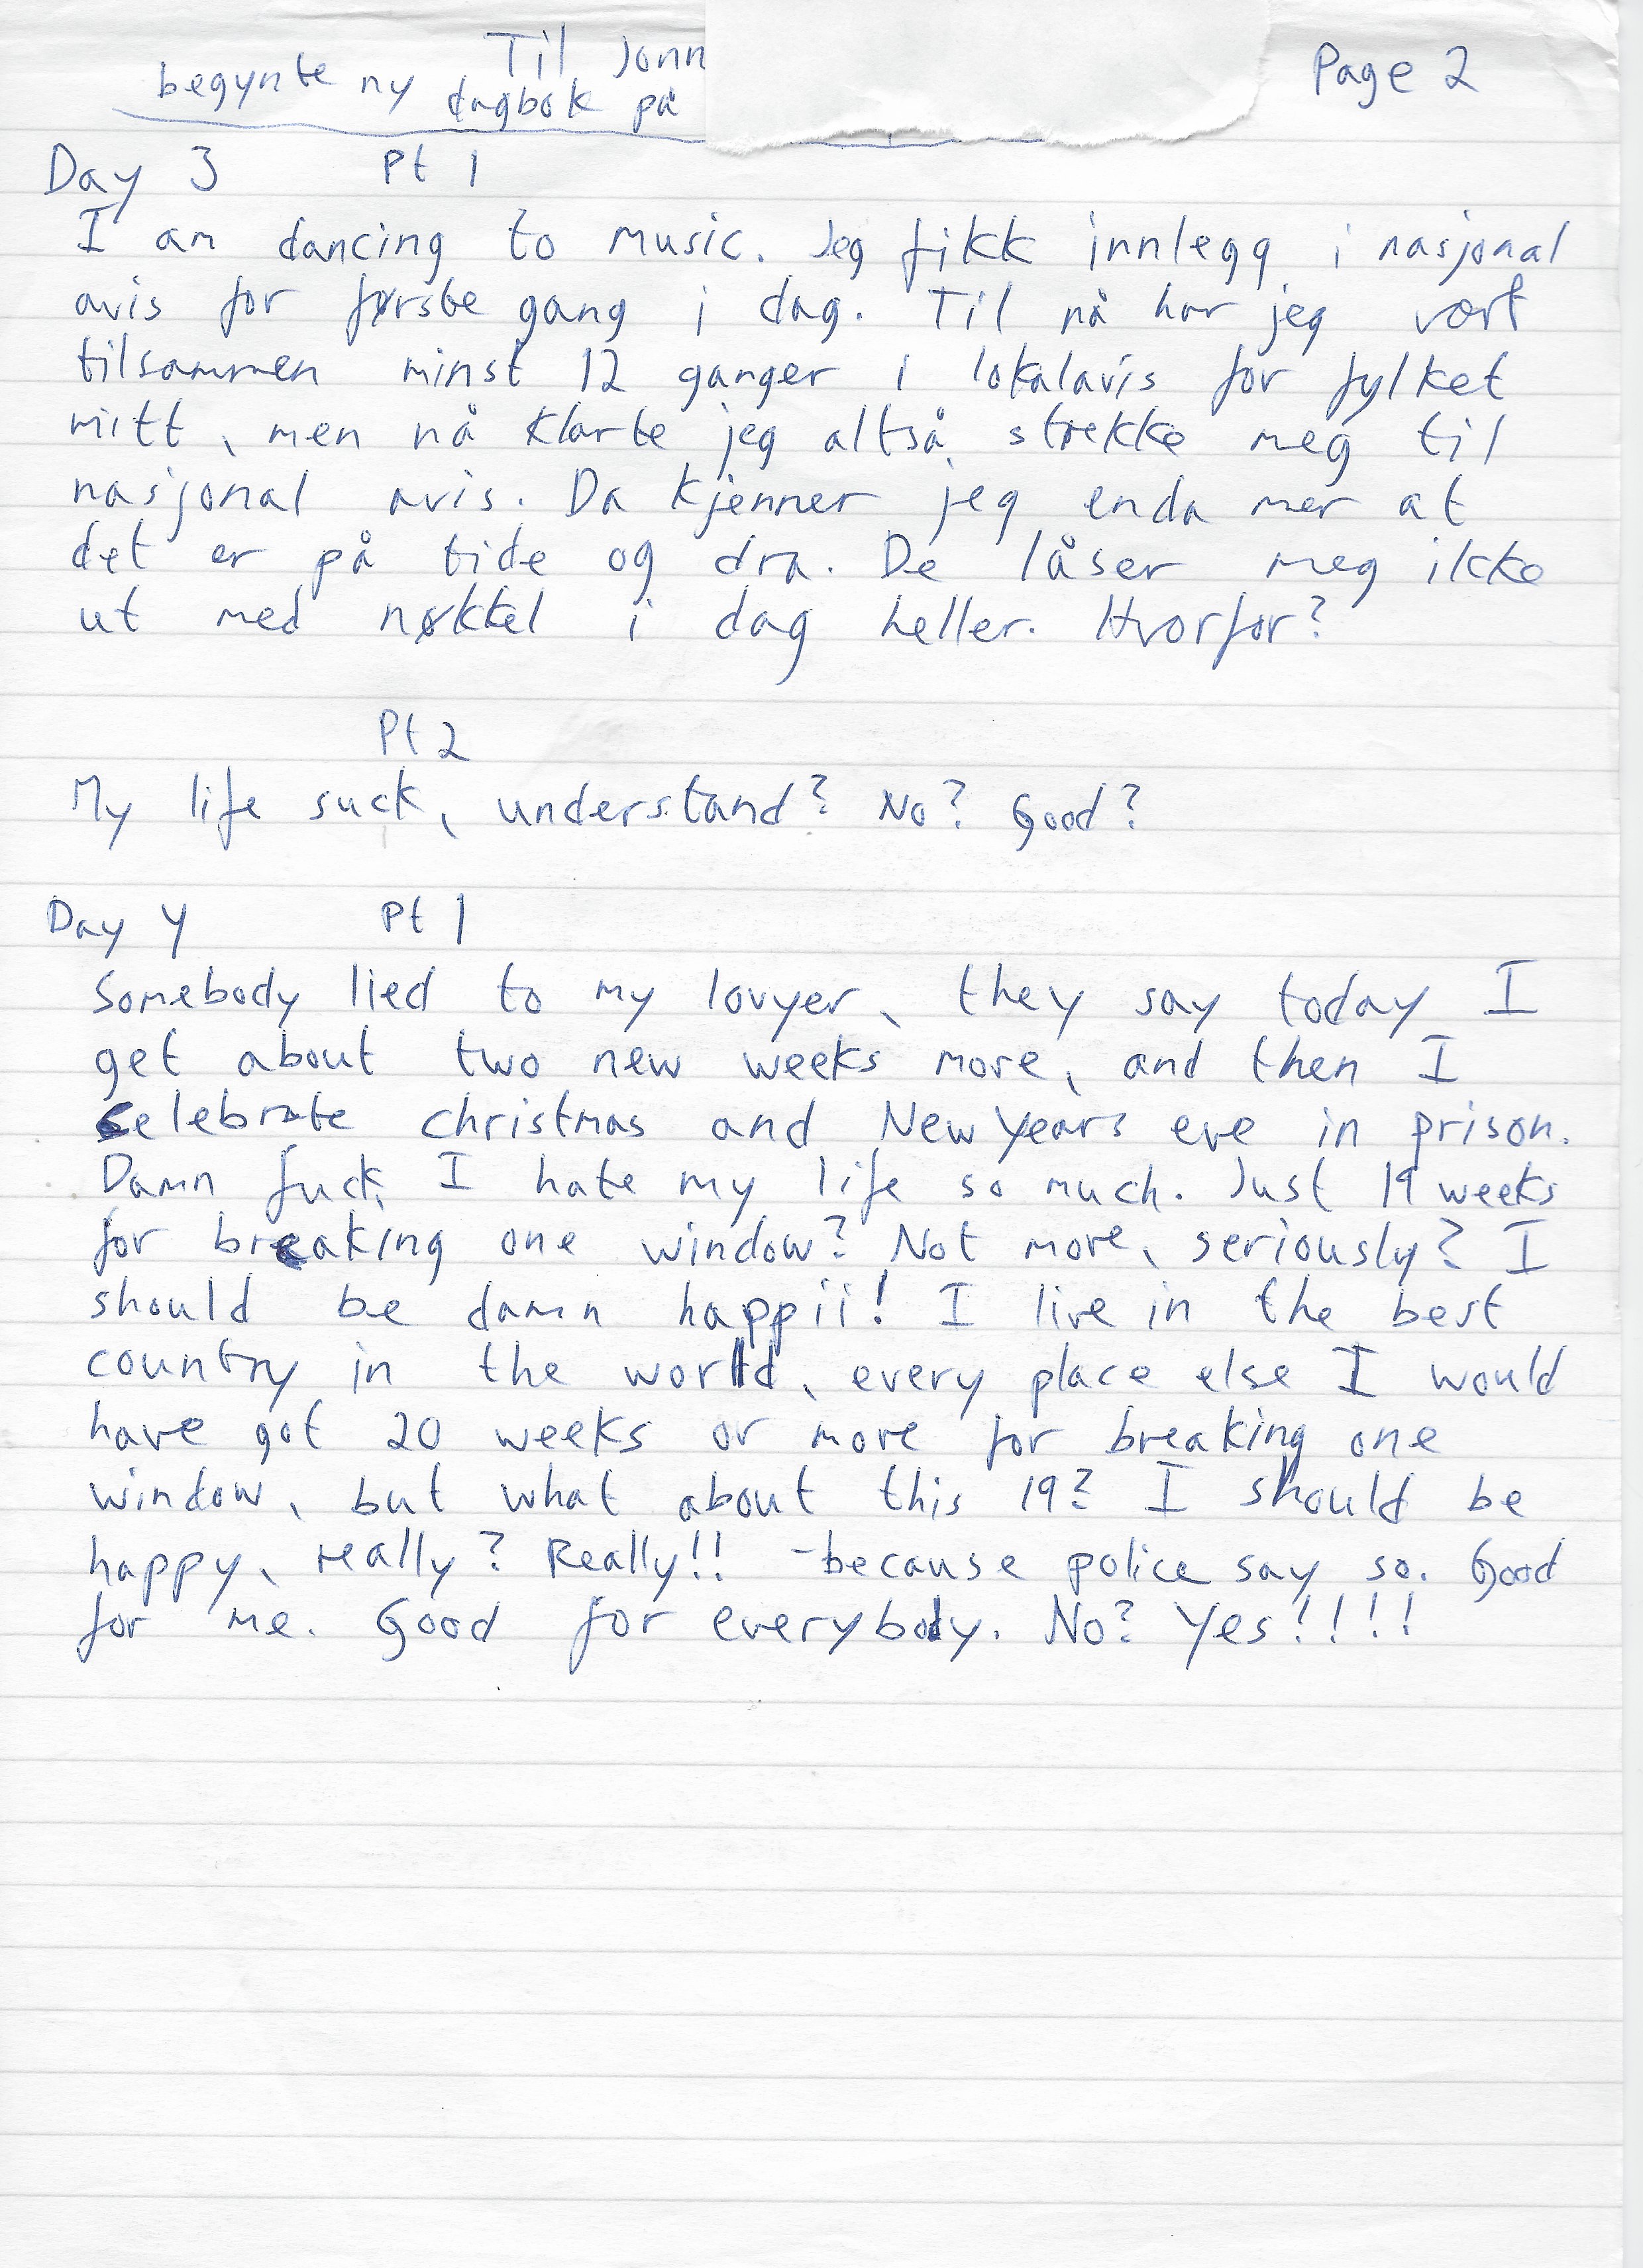 Til Jonn
begynte ny dagbok på
Page 2
Day 3 Pt 1
I am dancing to music. Jeg fikk innlegg i nasjonal
avis for første gang i dag. Til nå har jeg vært
tilsammen minst 12 ganger i lokalavis for fylket
mitt, men nå klarte jeg altså strekke meg til
nasjonal avis. Da kjenner jeg enda mer at
det er på tide og dra. De låser meg ikke
ut med nøkkel i dag heller. Hvorfor?
Pt 2
My life suck, understand? No? Good?
Day 4 Pt 1
Somebody lied to my lovyer, they say today I
get about two new weeks more, and then I
celebrate christmas and New Years eve in prison.
Damn fuck, I hate my life so much. Just 19 weeks
for breaking one window? Not more, seriously? I
should be damn happii! I live in the best
country in the world, every place else I would
have got 20 weeks or more for breaking one
window, but what about this 19? I should be
happy, really? Really!! -because police say so. Good
for me. Good for everybody. No? Yes!!!!